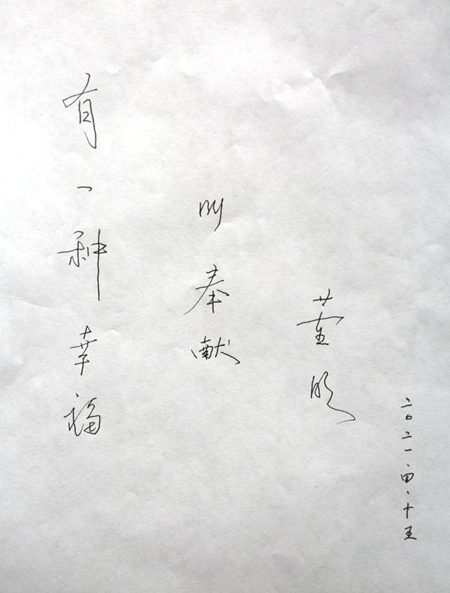 有一种幸福
叫奉献
董明
二〇二一.四.十五